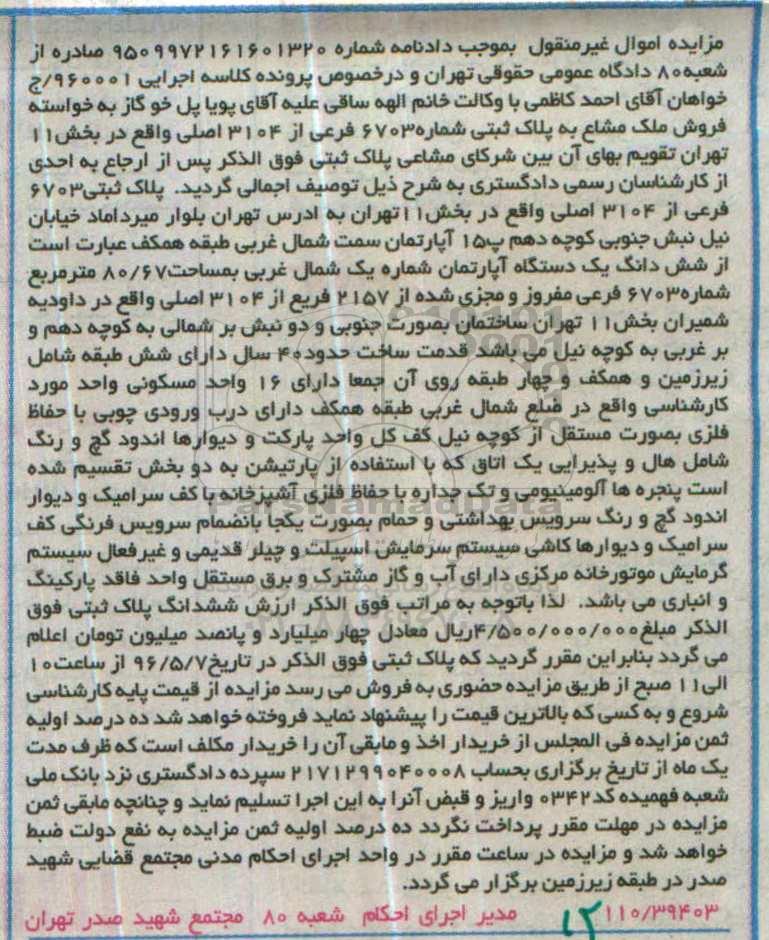 مزایده اموال غیرمنقول بموجب دادنامه شماره ۹۵۰۹۹۷۲۱۶۱۶۰۱۳۲۰ صادره از
شعبه۸۰ دادگاه عمومی حقوقی تهران و درخصوص پرونده کلاسه اجرایی ۹۶۰۰۰۱/ج
خواهان آقای احمد کاظمی با وکالت خانم الهه ساقی علیه آقای پویا پل خو گاز به خواسته
فروش ملک مشاع به پلاک ثبتی شماره۶۷۰۳ فرعی از ۳۱۰۴ اصلی واقع در بخش۱۱
تهران تقویم بهای آن بین شرکای مشاعی پلاک ثبتی فوق الذکر پس از ارجاع به احدی
از کارشناسان رسمی دادگستری به شرح ذیل توصیف اجمالی گردید. پلاک ثبتی۶۷۰۳
فرعی از ۳۱۰۴ اصلی واقع در بخش۱۱تهران به ادرس تهران بلوار میرداماد خیابان
نیل نبش جنوبی کوچه دهم پ۱۵ آپارتمان سمت شمال غربی طبقه همکف عبارت است
از شش دانگ یک دستگاه آپارتمان شماره یک شمال غربی بمساحت۸۰/۶۷ مترمربع
شماره۶۷۰۳ فرعی مفروز و مجزی شده از ۲۱۵۷ فریع از ۳۱۰۴ اصلی واقع در داودیه
شمیران بخش۱۱ تهران ساختمان بصورت جنوبی و دو نبش بر شمالی به کوچه دهم و
بر غربی به کوچه نیل می باشد قدمت ساخت حدود۴۰ سال دارای شش طبقه شامل
زیرزمین و همکف و چهار طبقه روی آن جمعا دارای ۱۶ واحد مسکونی واحد مورد
کارشناسی واقع در ضلع شمال غربی طبقه همکف دارای درب ورودی چوبی با حفاظ
فلزی بصورت مستقل از کوچه نیل کف کل واحد پارکت و دیوارها اندود گچ و رنگ
شامل هال و پذیرایی یک اتاق که با استفاده از پارتیشن به دو بخش تقسیم شده
است پنجره ها آلومینیومی و تک جداره با حفاظ فلزی آشپزخانه با کف سرامیک و دیوار
اندود گچ و رنگ سرویس بهداشتی و حمام بصورت یکجا بانضمام سرویس فرنگی کف
سرامیک و دیوارها کاشی سیستم سرمایش اسپیلت و چیلر قدیمی و غیرفعال سیستم
گرمایش موتورخانه مرکزی دارای آب و گاز مشترک و برق مستقل واحد فاقد پارکینگ
و انباری می باشد. لذا باتوجه به مراتب فوق الذکر ارزش ششدانگ پلاک ثبتی فوق
الذکر مبلغ۴/۵۰۰/۰۰۰/۰۰۰ریال معادل چهار میلیارد و پانصد میلیون تومان اعلام
می گردد بنابراین مقرر گردید که پلاک ثبتی فوق الذکر در تاریخ۹۶/۵/۷ از ساعت۱۰
الی۱۱ صبح از طریق مزایده حضوری به فروش می رسد مزایده از قیمت پایه کارشناسی
شروع و به کسی که بالاترین قیمت را پیشنهاد نماید فروخته خواهد شد ده درصد اولیه
ثمن مزایده فی المجلس از خریدار اخذ و مابقی آن را خریدار مکلف است که ظرف مدت
یک ماه از تاریخ برگزاری بحساب ۲۱۷۱۲۹۹۰۴۰۰۰۸ سپرده دادگستری نزد بانک ملی
شعبه فهمیده کد۰۳۴۲ واریز و قبض آنرا به این اجرا تسلیم نماید و چنانچه مابقی ثمن
مزایده در مهلت مقرر پرداخت نگردد ده درصد اولیه ثمن مزایده به نفع دولت ضبط
خواهد شد و مزایده در ساعت مقرر در واحد اجرای احکام مدنی مجتمع قضایی شهید
صدر در طبقه زیرزمین برگزار می گردد.
۱۱۰/۳۹۴۰۳ ۱۲ مدیر اجرای احکام شعبه ۸۰ مجتمع شهید صدر تهران
ParsNamadData